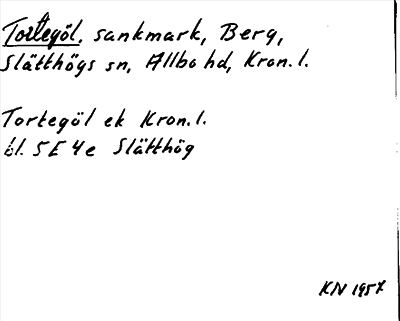 Tortegöl, sankmark, Berg,
Slätthögs sn, Allbo hd, Kron. l.
Tortegöl ek Kron. l.
bl. 5E 4e Slätthög
KN 1957